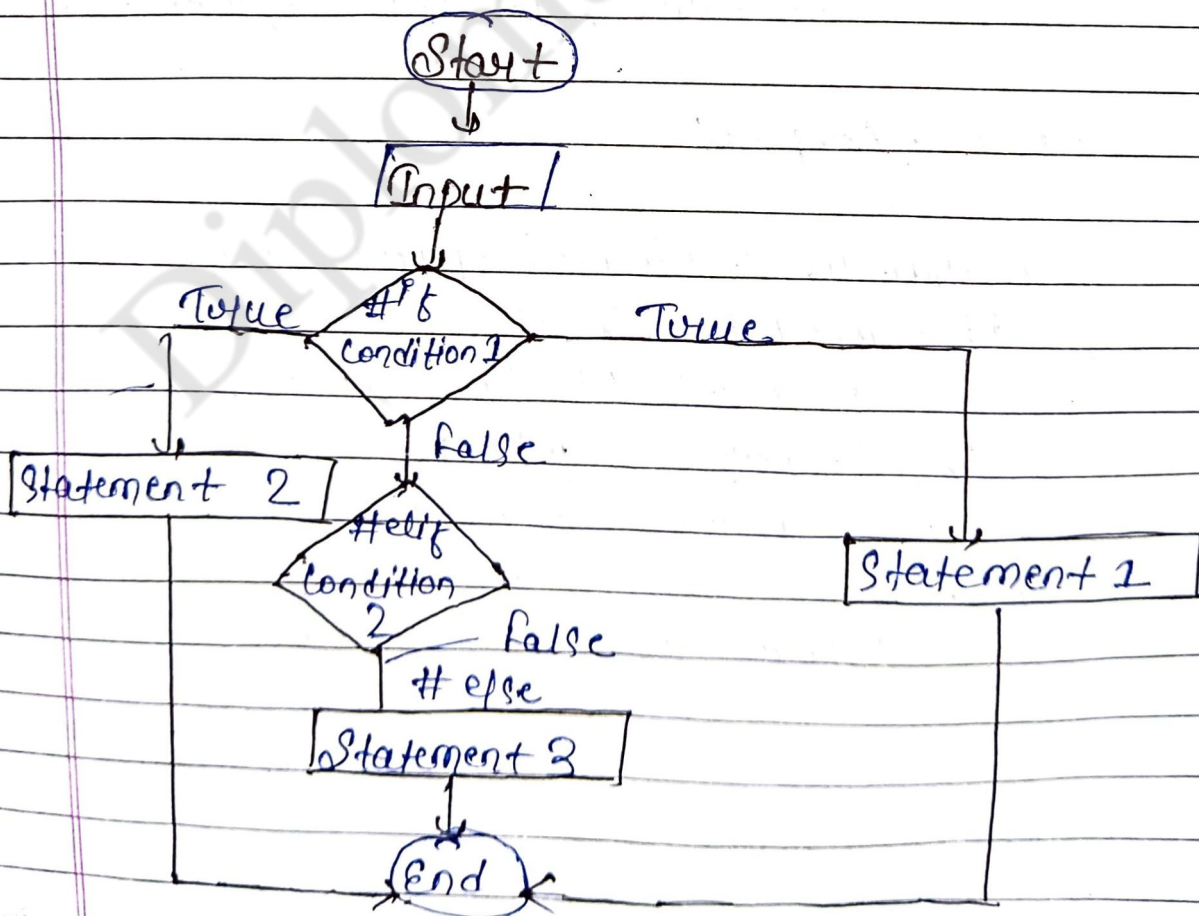 Start
Input
True
#if
True
condition 1
False
Statement 2
#elif
Condition
2
Statement 1
False
# else
Statement 3
End
Diplom